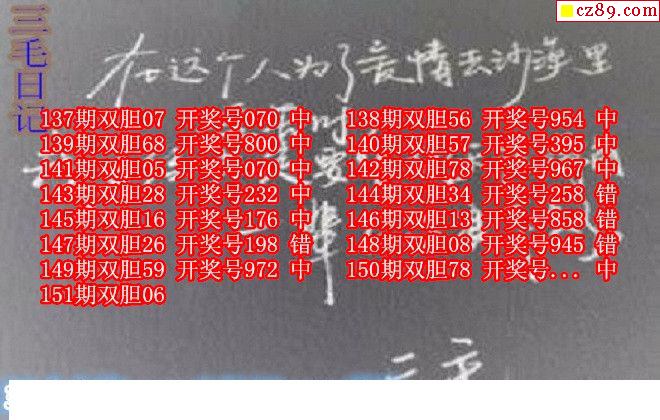 cz89.com
三毛日记
在这个人为了爱情去沙漠里
137期双胆07 开奖号070 中 138期双胆56 开奖号954 中
139期双胆68 开奖号800 中 140期双胆57 开奖号395 中
141期双胆05 开奖号070 中 142期双胆78 开奖号967 中
143期双胆28 开奖号232 中 144期双胆34 开奖号258 错
145期双胆16 开奖号176 中 146期双胆13 开奖号858 错
147期双胆26 开奖号198 错 148期双胆08 开奖号945 错
149期双胆59 开奖号972 中 150期双胆78 开奖号... 中
151期双胆06